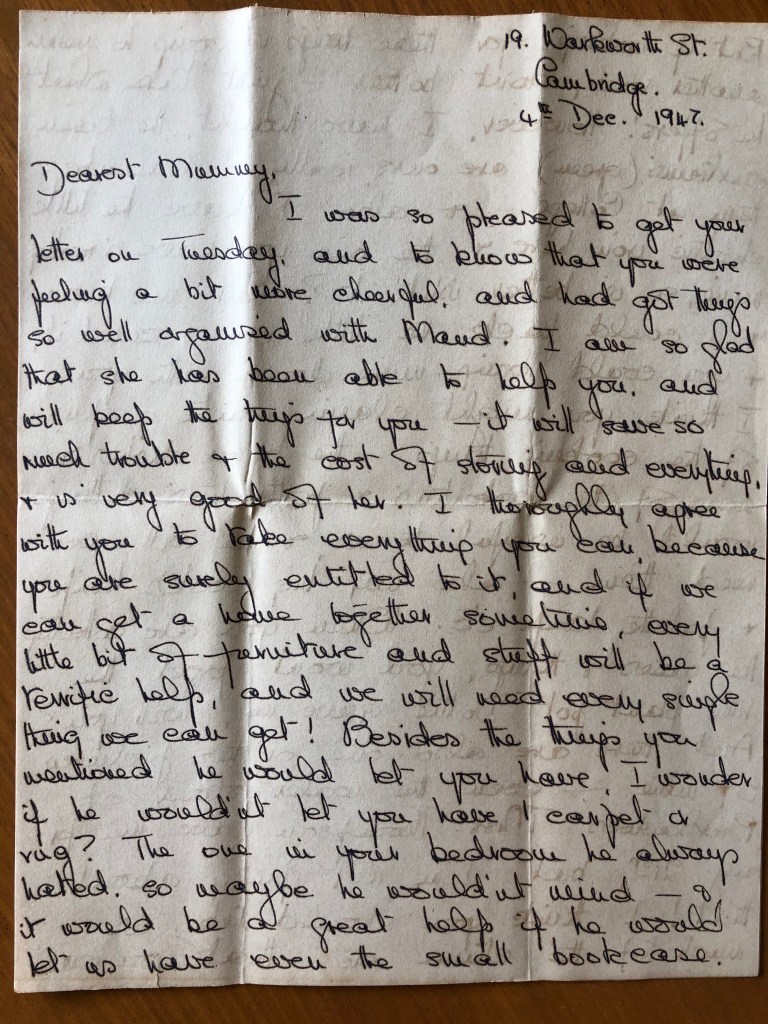 19. Warkworth St.
Cambridge.
4th Dec. 1947.
Dearest Mummy,
I was so pleased to get your
letter on Tuesday, and to know that you were
feeling a bit more cheerful, and had got things
so well organised with Maud. I am so glad
that she has been able to help you, and
will keep the things for you – it will save so
much trouble & the cost of storing and everything,
& is very good of her. I thoroughly agree
with you to take everything you can, because
you are surely entitled to it, and if we
can get a home together sometime, every
little bit of furniture and stuff will be a
terrific help, and we will need every single
thing we can get! Besides the things you
mentioned he would let you have, I wonder
if he wouldn't let you have 1 carpet or
rug? The one in your bedroom he always
hated, so maybe he wouldn't mind – &
it would be a great help if he would
let us have even the small bookcase.